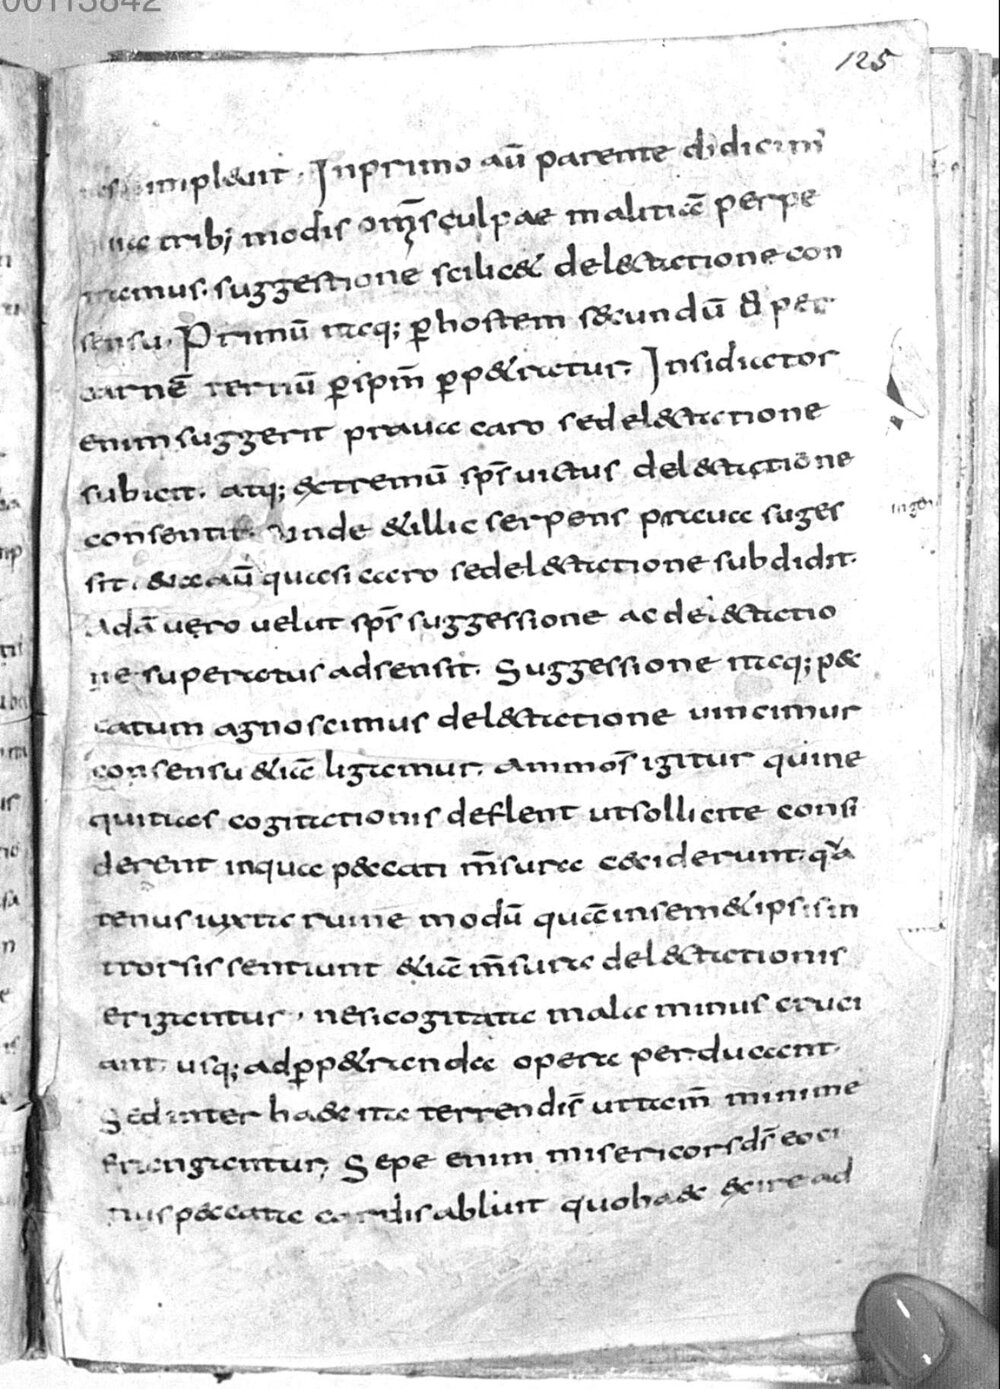 00113842
125
implevit. Inprimo aū parente didicim
tribꝫ modis om̄s culpae malitiā perpe
tramus. suggestione scilicet delectatione con
sensu. Primū itaqꝫ ꝑ hostem secundū
carnē tertiū ꝑ spm̄ ꝑpetratur. Insidiator
enim suggerit prava caro se delectatione
subicit. atqꝫ extremū sps̄ victus delectatione
consentit. Unde & illic serpens prava suges
sit. aū quasi caro se delectatione subdidit.
Adā vero velut sps̄ suggessione ac delectatio
ne superatus adsensit. Suggessione itaqꝫ pec
catum agnoscimus delectatione vincimur
consensu &iā ligamur. Ammon̄s igitur
cogitationis deflent ut sollicite consi
derent inqua peccati m̄sura ceciderunt. q̄
tenus iuxta ruine modū quā insemet ipsis in
trorsis sentiunt &iā m̄sura delectationis
erigantur, ne si cogitata mala minus cruci
ant. usqꝫ ad ꝑpetranda opera perducant.
Sed inter haec ita terrendis̄ ut tam̄ minime
frangantur, Sepe enim misericors ds̄ eo ci
tius peccata cordis abluit quo haec exire ad